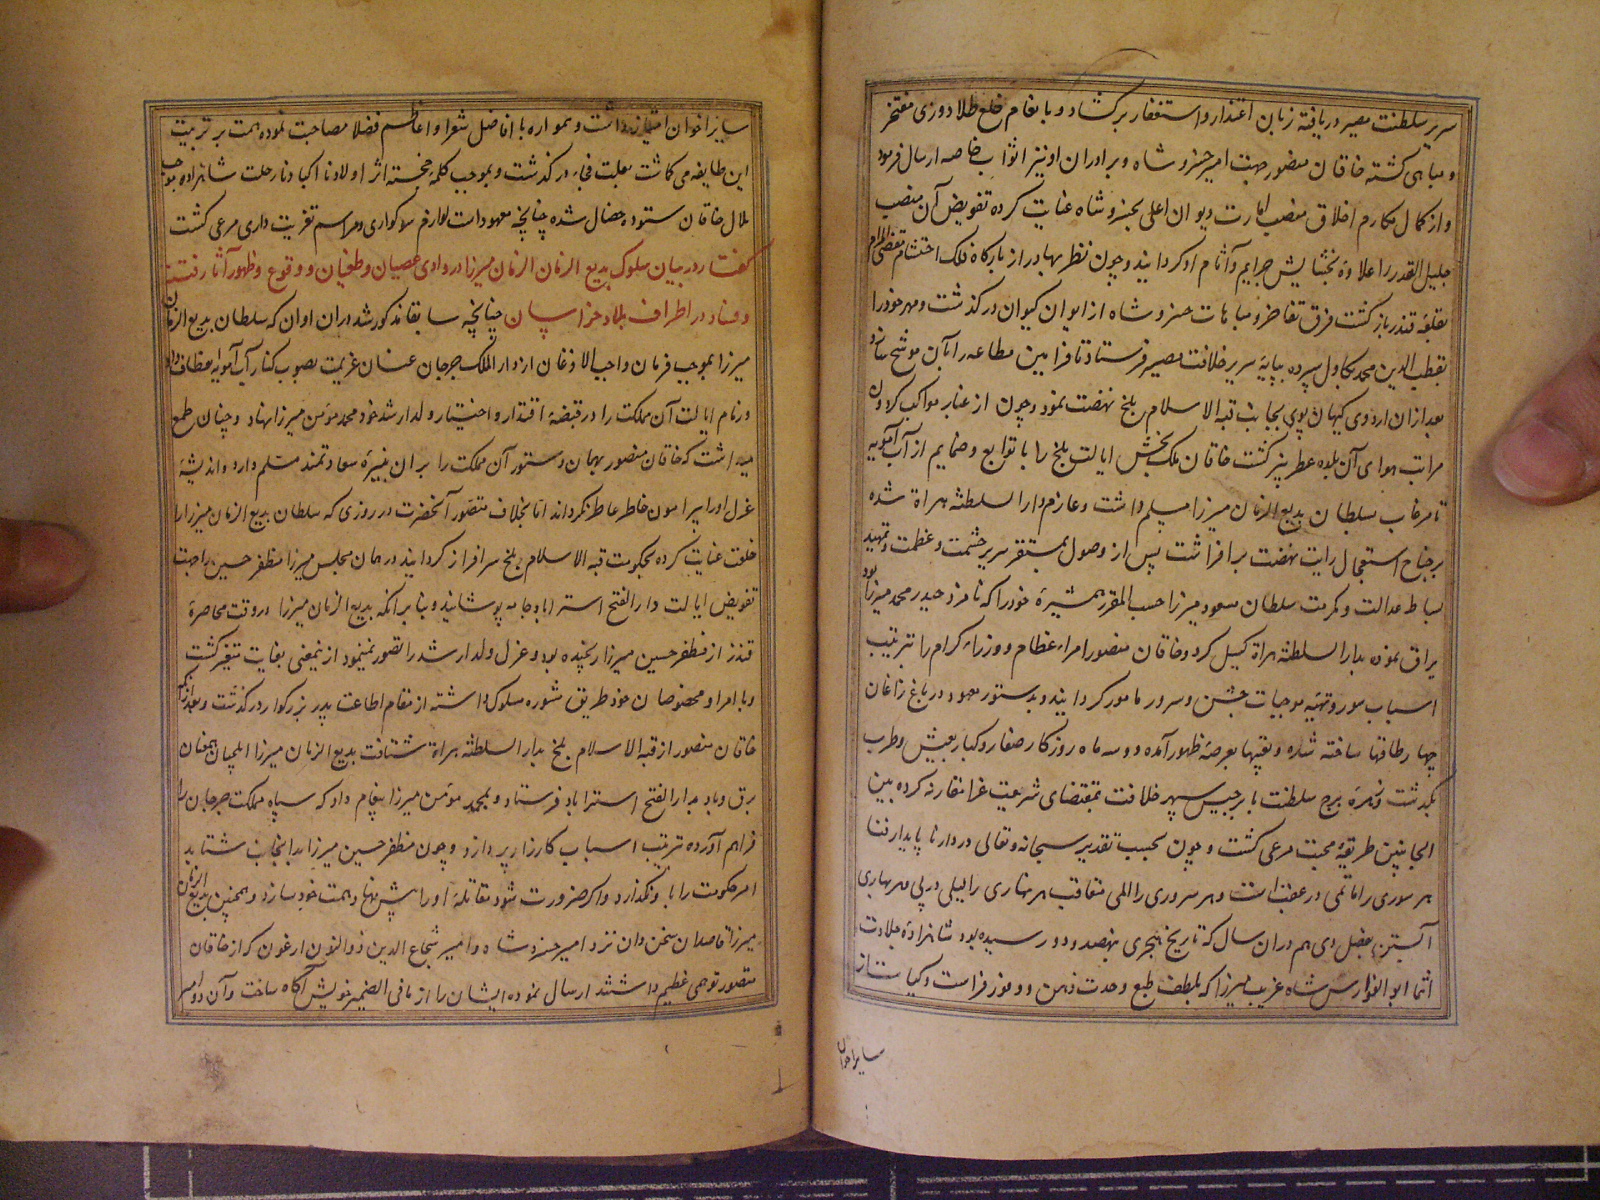 سریر سلطنت مصیر دریافته زبان اعتذار و استغفار برکشاد و بانعام خلع طلادوزی مفتخر
و مباهی کشته خاقان منصور جهت امیر خسرو شاه و برادران او نیز اثواب خاصه ارسال فرمود
و از کمال مکارم اخلاق منصب امارت دیوان اعلی بخسرو شاه عنایت کرده تفویض آن منصب
جلیل القدر را علاوهٔ بخشایش جرایم و آثام او کردانید و چون نظر بهادر از بارکاه فلک احتشام مقضی المرام
بقلعه قندز بازکشت فرق تفاخر و مباهات خسرو شاه از ایوان کیوان درکذشت و مهر خود را
بقطب الدین محمد بکاول سپرده بپایهٔ سریر خلافت مصیر فرستاد تا فرامین مطاعه را بآن موشح سازد و
بعد ازان اردوی کیهان پوی بجانب قبة الاسلام بلخ نهضت نمود و چون از غبار مواکب کردون
مراتب هوای آن بلده عطربیز کشت خاقان ملک بخش ایالت بلخ را با توابع و ضمایم از آب آمویه
تا مرغاب بسلطان بدیع الزمان میرزا مسلم داشت و عازم دار السلطنه هراة شده
بر جناح استعجال رایت نهضت برافراشت پس از وصول بمستقر سریر حشمت و عظمت و تمهید
بساط عدالت و مکرمت سلطان مسعود میرزا حسب المقرر همشیرهٔ خود را که نامزد حیدر محمد میرزا بود
یراق نموده بدار السلطنه هراة کسیل کرد و خاقان منصور امراء عظام و وزراء کرام را بترتیب
اسباب سور و تهیه موجبات جشن و سرور مامور کردانید و بدستور معهود در باغ زاغان
چهار طاقها ساخته شده و تعبیها بعرصهٔ ظهور آمده دو سه ماه روزکار صغار و کبار بعیش و طرب
بکذشت و زهرهٔ برج سلطنت با برجیس سپهر خلافت بمقتضای شریعت غرا مقارنه کرده بین
الجانبین طریقهٔ محبت مرعی کشت و چون بحسب تقدیر سبحانه و تعالی در دار ناپایدار فنا
هر سوری را ماتمی در عقبست و هر سروری را المی متعاقب هر نهاری را لیلی در پی و هر بهاری
آبستن بفصل دی هم دران سال که تاریخ هجری بنهصد و دو رسیده بود شاهزاده جلادت
انتما ابو الفوارس شاه غریب میرزا که بلطف طبع و حدت ذهن و وفور فراست و کیاست از
سایر اخوان
سایر اخوان امتیاز داشت و همواره با افاضل شعرا و اعاظم فضلا مصاحبت نموده همت بر تربیت
این طایفه می کماشت بعلت فجاء درکذشت و بموجب کلمهٔ خجسته اثر اولادنا اکبادنا رحلت شاهزاده موجب
ملال خاقان ستوده خصال شده چنانچه معهودات لوازم سوکواری و مراسم تعزیت داری مرعی کشت
کفتار در بیان سلوک بدیع الزمان میرزا در وادی عصیان و طغیان و وقوع و ظهور آثار فتنه
و فساد در اطراف بلاد خراسان چنانچه سابقا مذکور شد دران اوان که سلطان بدیع الزمان
میرزا بموجب فرمان واجب الاذعان از دار الملک جرجان عنان عزیمت بصوب کنار آب آمویه انعطاف داد
و زمام ایالت آن مملکت را در قبضهٔ اقتدار و اختیار ولد ارشد خود محمد مؤمن میرزا نهاد و چنان طمع
میداشت که خاقان منصور بهمان دستور آن مملکت را بران نبیرهٔ سعادتمند مسلم دارد و اندیشهٔ
عزل او را پیرامون خاطر عاطر نکرداند اما بخلاف متصور آنحضرت در روزی که سلطان بدیع الزمان میرزا را
خلعت عنایت کرده بحکومت قبة الاسلام بلخ سرافراز کردانید در همان مجلس میرزا مظفر حسین را جهت
تفویض ایالت دار الفتح استراباد جامه پوشانید و بنابرانکه بدیع الزمان میرزا در وقت محاصرهٔ
قندز از مظفر حسین میرزا رنجیده بود و عزل ولد ارشد را تصور نمینمود ازینمعنی بغایت متغیر کشت
و با امرا و مخصوصان خود طریق مشوره مسلوک داشته از مقام اطاعت پدر بزرکوار درکذشت و بعد ازانکه
خاقان منصور از قبة الاسلام بلخ بدار السلطنه هراة شتافت بدیع الزمان میرزا ایلچیان بمعنان
برق و باد بدار الفتح استراباد فرستاد و بمحمد مؤمن میرزا پیغام داد که سپاه مملکت جرجان را
فراهم آورده ترتیب اسباب کارزار پردازد و چون مظفر حسین میرزا بدانجانب شتابد
امر حکومت را باو نکذارد و اکر ضرورت شود مقاتلهٔ او را پیش نهاد همت خود سازد و همچنین بدیع الزمان
میرزا قاصدان سخن دان نزد امیر خسرو شاه و امیر شجاع الدین ذو النون ارغون که از خاقان
منصور توهمی عظیم داشتند ارسال نموده ایشان را از ما فی الضمیر خویش آکاه ساخت و آن دو امیر